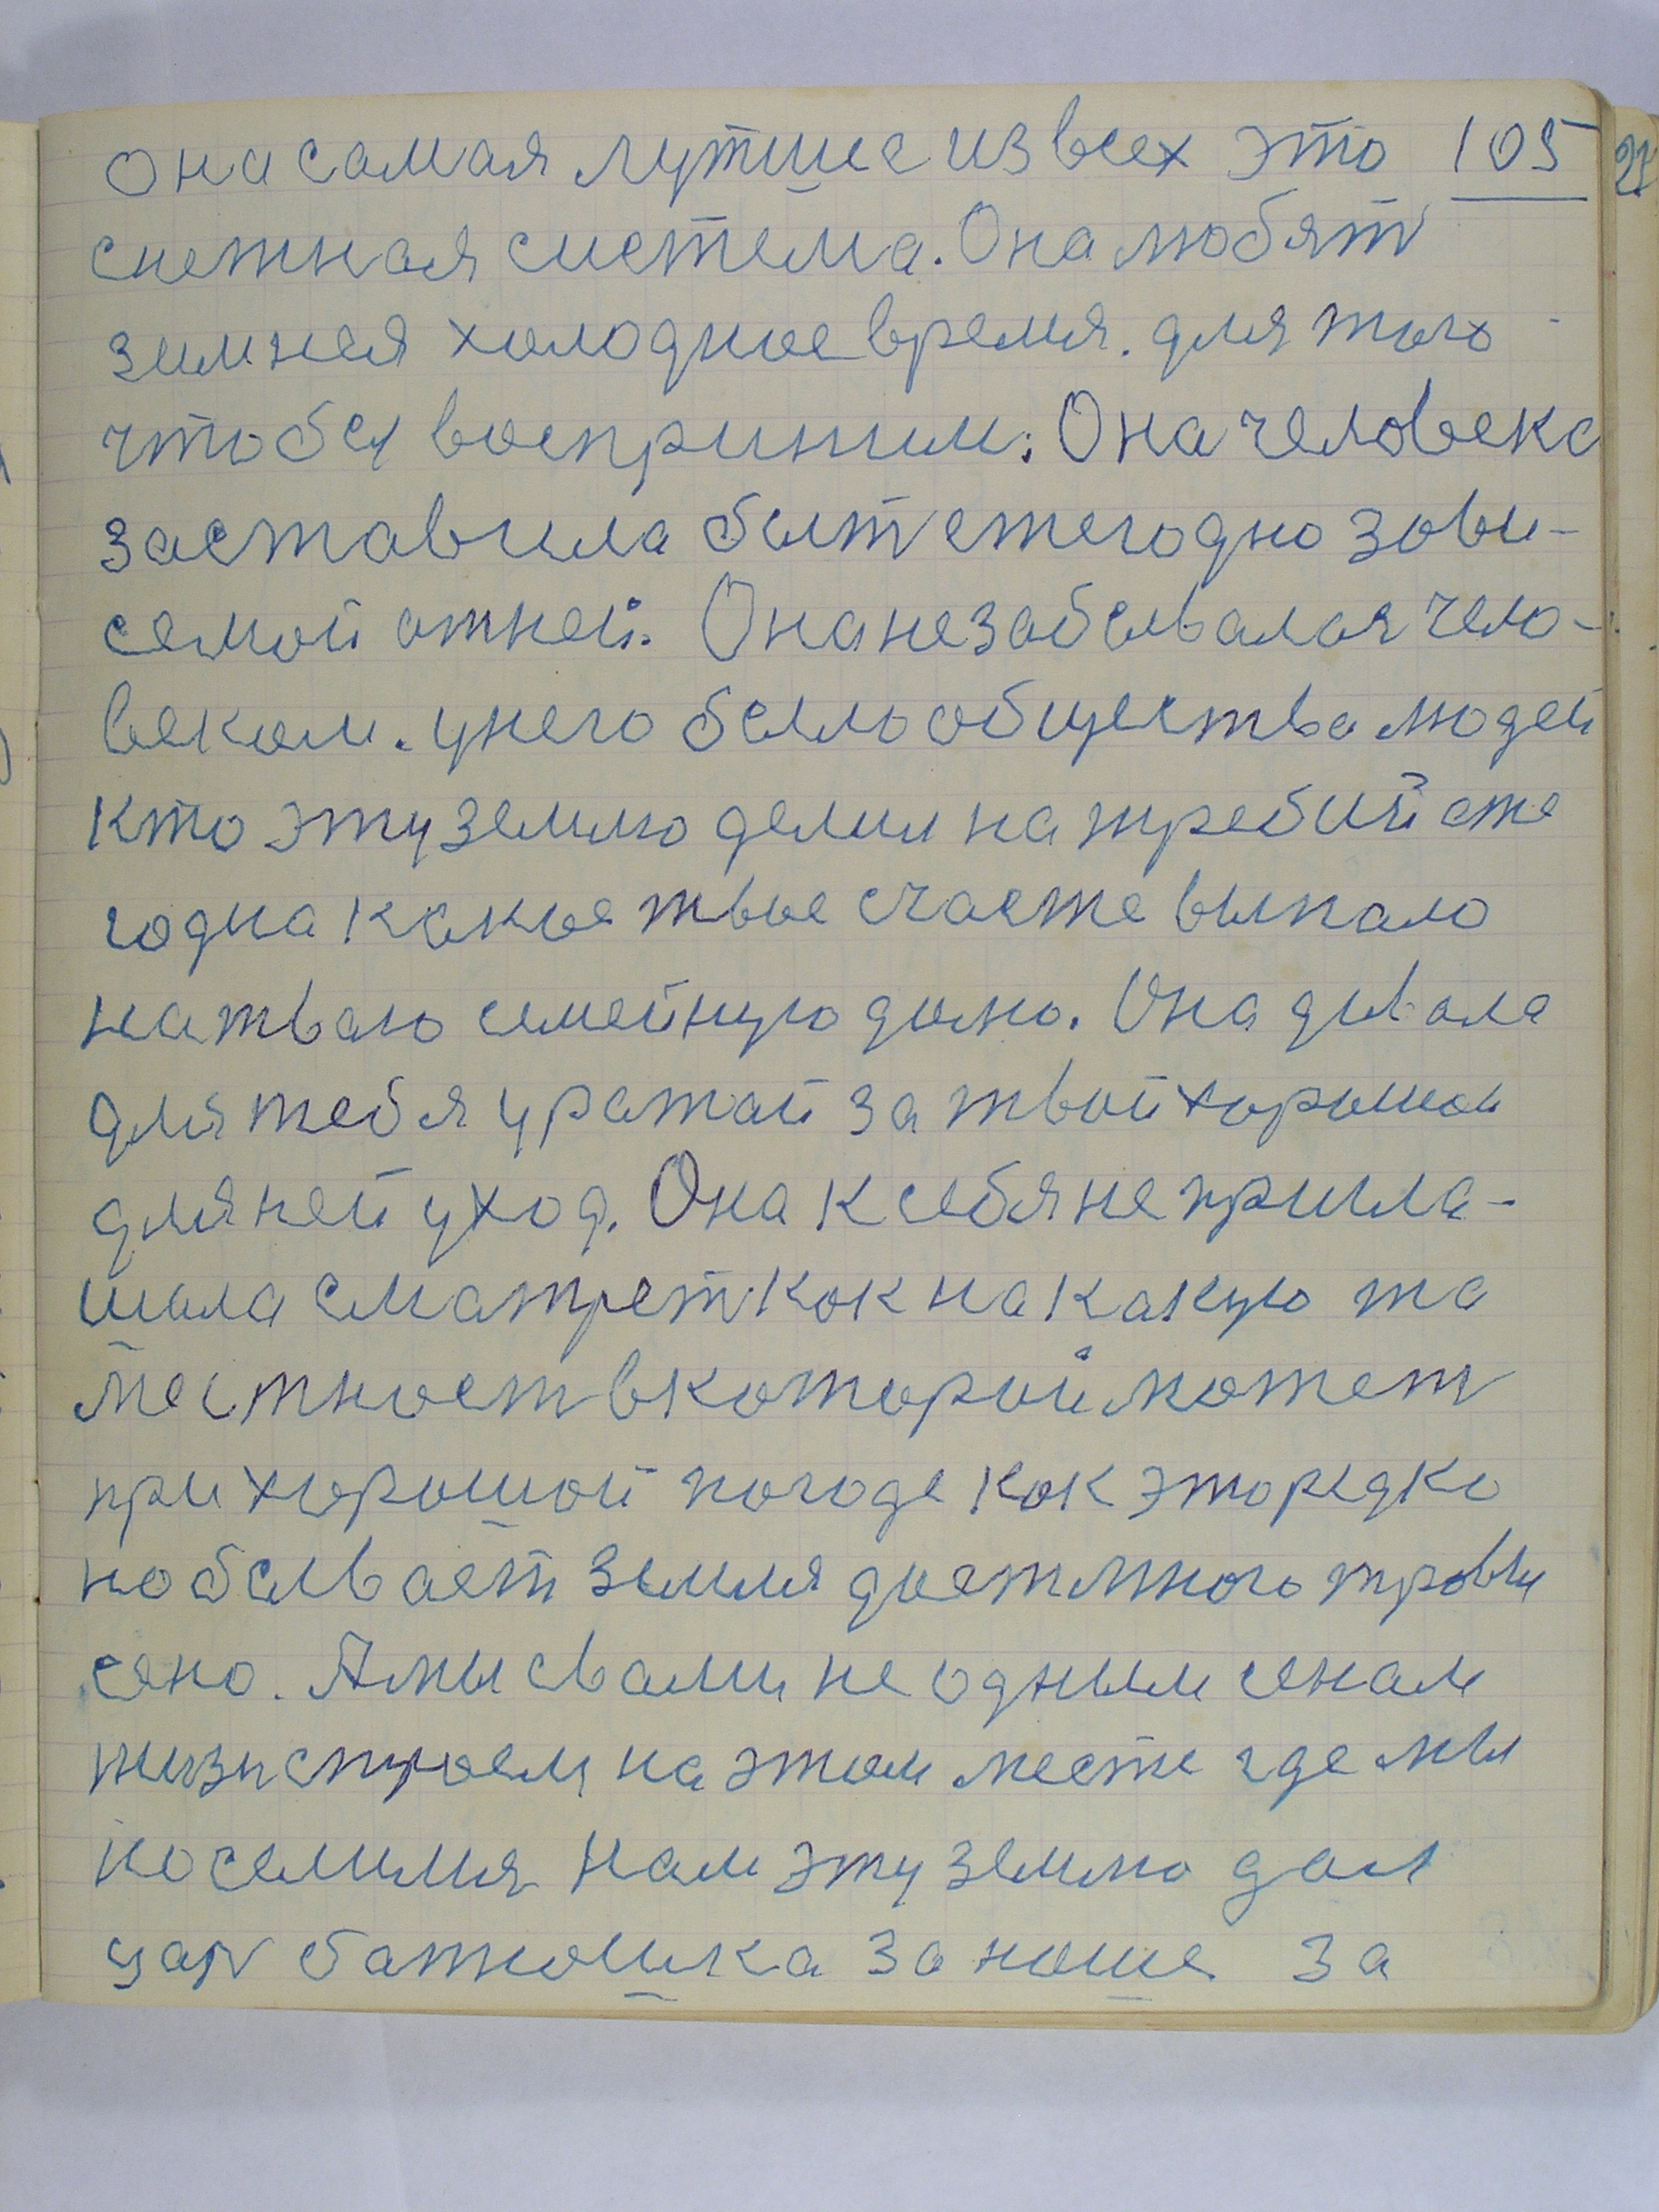 она самая лутшие из всех это 105
снежная система. Она любят
зимнея холодное время. для того
чтобы восприним: Она человека
заставила быт ежегодно зови-
семой отней. Она не забывалоя чело-
веком. у него было общества людей
кто эту землю делил на жребий еже
годна какое твое счасте выпало
на твою семейную долю. Она давала
для тебя уражай за твой хорошои
для ней уход. Она к себя не пригла-
шала сматрет как на какую та
местност в которой может
при хорошой погоде как это редко
но бывает земля дает много травы
сено. А мы с вами не одным сенам
жизн строем на этом месте где мы
поселимя нам эту землю дал
цар батюшка за наше за